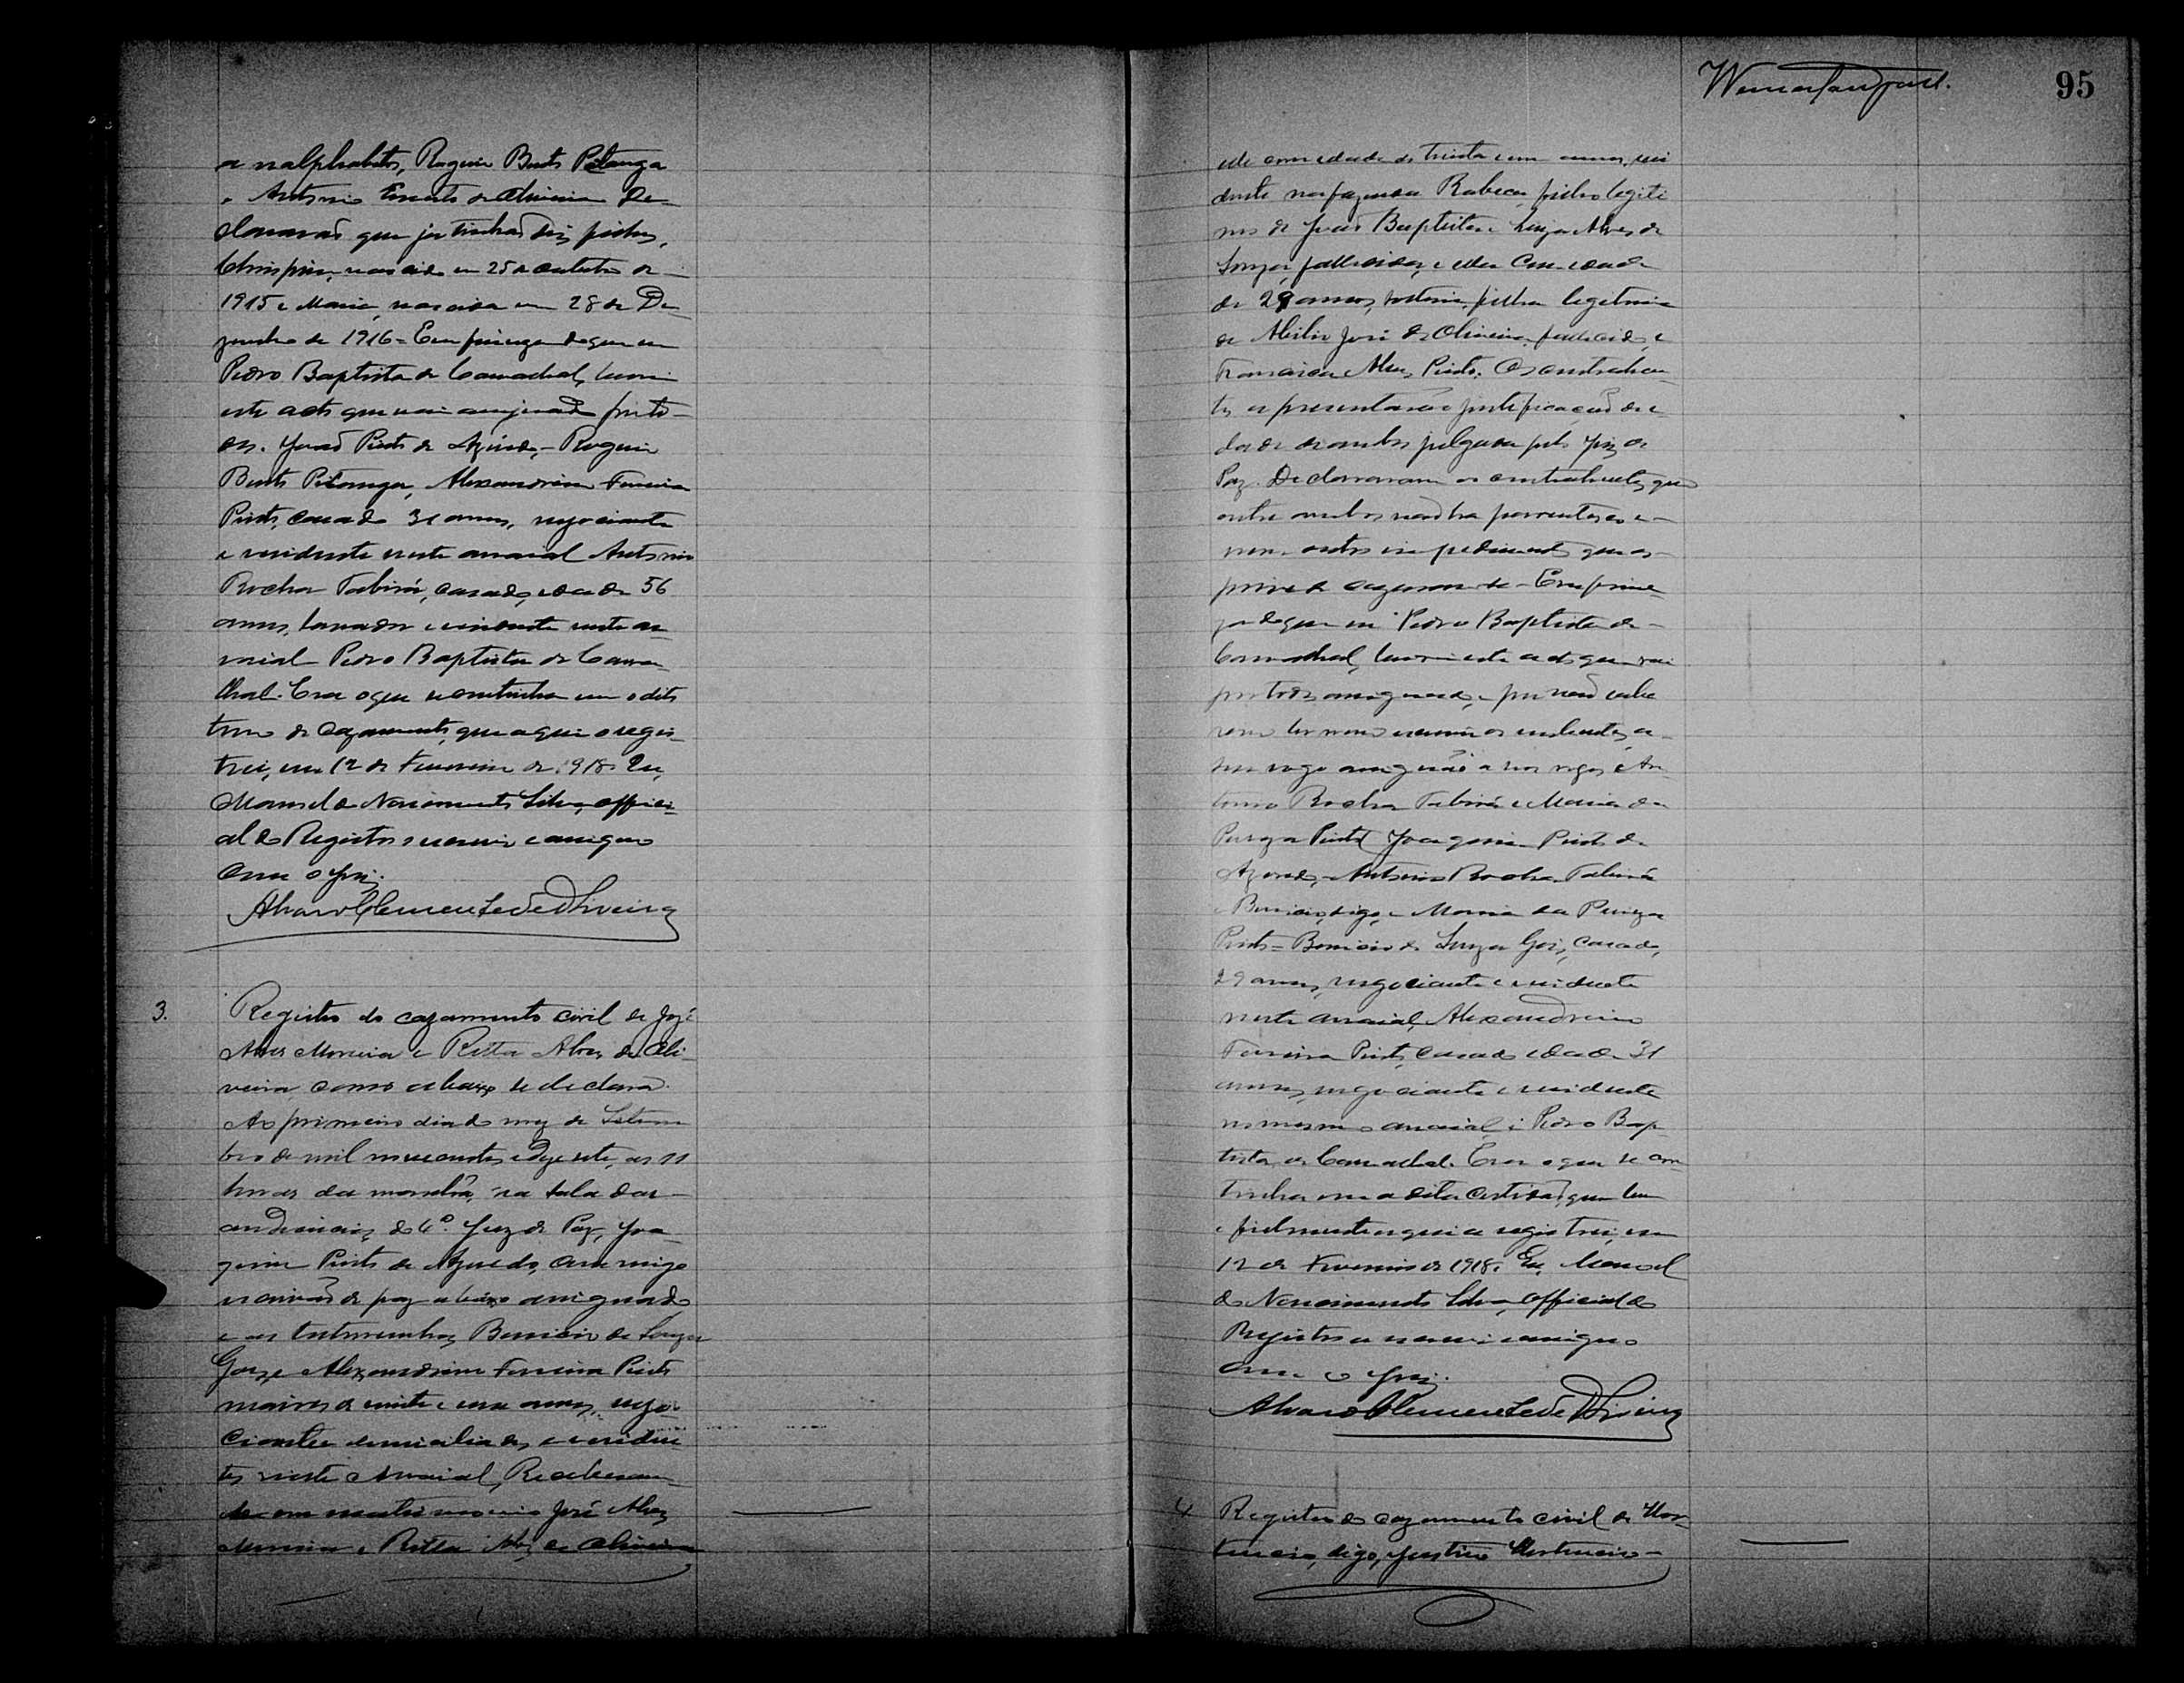 analphabetos, Roquin Bento Pitanga
e Antonio Ernesto de Oliveira De-
clararão que ja tinhas dois filhos,
nascido em 25 de outubro de
1915 e Maria, nascida em 28 de De-
zembro de 1916 = Em firmeza do que eu
Pedro Baptista de Carvalhal, lavrei
este acto que vai assignado por to-
dos. João Pinto de Azevedo, - Roquin
Bento Pitanga, Alexandrino Ferreira
Pinto, casado 31 annos, negociante
e residente neste arraial Antonio
Rocha Tabirá, casado, idade 56
annos, lavrador e residente neste ar-
raial Pedro Baptista de Carva-
lhal. Era o que se continha em o dito
termo de cazamento, que aqui o regis-
trei, em 12 de Fevereiro de 1918. Eu,
Manoel do Nascimento Silva, offici-
al do Registro escrevi e assigno
com o Juiz.
Alvaro Clemente de Oliveira
3. Registro do cazamento civil de José
Alves Moreira e Ritta Alves de Oli-
veira como abaixo se declara.
Ao primeiro dia do mez de Setem-
bro de mil novecentos e dezesete, as 11
horas da manhã, na sala das
audiencias do 6º. Juiz de Paz, Joa-
quim Pinto de Azevedo, commigo
escrivão de paz abaixo assignado
e as testemunhas Benicio de Souza
Goes, e Alexandrino Ferreira Pinto
maiores de vinte e um annos, nego-
ciantes domiciliados e residen-
tes neste Arraial, Receberam-
se em matrimonio José Alves
Moreira e Ritta Alves de Oliveira
95
elle com idade de trinta e um annos, resi
dente na fazenda Rabeca, filho legiti
mo de João Baptista e Luiza Alves de
Souza, fallecidos, e ella com idade
de 29 annos, solteira, filha legitima
de Abilio José de Oliveira, fallecido, e
Francisca Alves Pinto. Os contrahen-
tes apresentarão justificação de i
dade de ambos julgada pelo Juiz de
Paz. Declararam os contrahentes que
entre ambos não ha parentesco e
nem outro impedimento que os
prive de cazarem-se - Em firme-
za do que eu Pedro Baptista de
Carvalhal, lavrei este acto que vai
por todos assignado, e por não sabe
rem ler nem escrever os nubentes, a
seu rogo assignão a seos rogos An-
tonio Rocha Tabirá e Maria da
Pureza Pinto Joaquim Pinto de
Azevedo, - Antonio Rocha Tabirá
e Benicio, digo, e Maria da Pureza
Pinto = Benicio de Souza Goes, casado,
29 annos, negociante e residente
neste arraial, Alexandrino
Ferreira Pinto, casado idade 31
annos, negociante e residente
no mesmo arraial, e Pedro Bap-
tista de Carvalhal. Era o que se con
tinha em a dita certidão, que bem
e fielmente aqui a registrei, em
12 de Fevereiro de 1918. Eu, Manoel
do Nascimento Silva, official do
Registro a escrevi e assigno
com o Juiz.
Alvaro Clemente de Oliveira
4 Registro do cazamento civil de Hor-
tencio, digo, Justino Hortencio